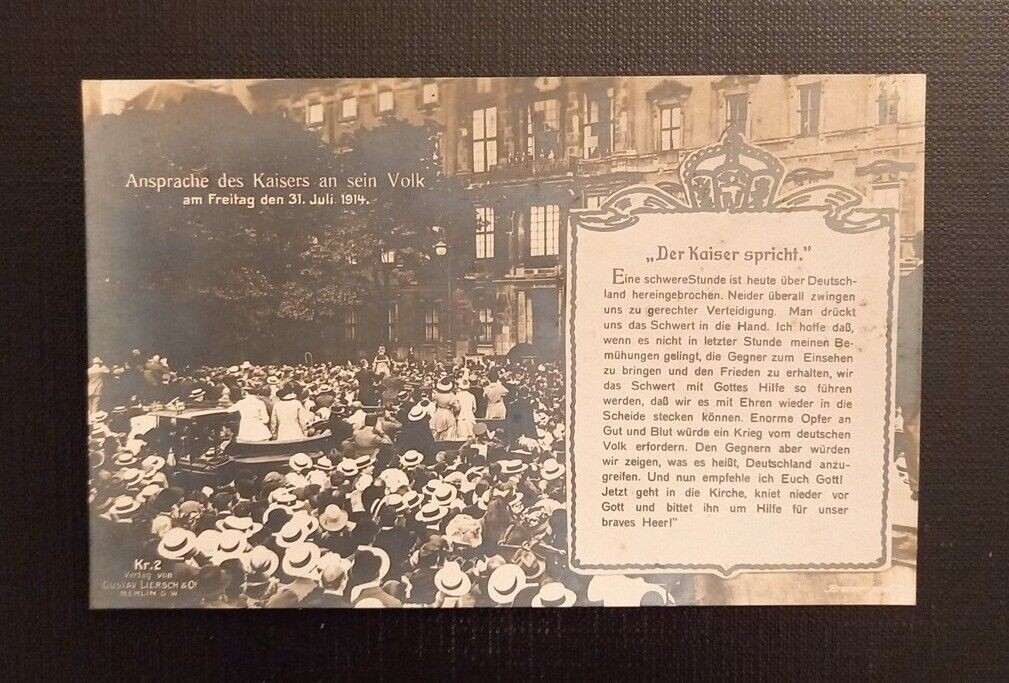 Ansprache des Kaisers an sein Volk
am Freitag den 31. Juli 1914.
„Der Kaiser spricht."
Eine schwereStunde ist heute über Deutsch-
land hereingebrochen. Neider überall zwingen
uns zu gerechter Verteidigung. Man drückt
uns das Schwert in die Hand. Ich hoffe daß,
wenn es nicht in letzter Stunde meinen Be-
mühungen gelingt, die Gegner zum Einsehen
zu bringen und den Frieden zu erhalten, wir
das Schwert mit Gottes Hilfe so führen
werden, daß wir es mit Ehren wieder in die
Scheide stecken können. Enorme Opfer an
Gut und Blut würde ein Krieg vom deutschen
Volk erfordern. Den Gegnern aber würden
wir zeigen, was es heißt, Deutschland anzu-
greifen. Und nun empfehle ich Euch Gott!
Jetzt geht in die Kirche, kniet nieder vor
Gott und bittet ihn um Hilfe für unser
braves Heer!"
Kr. 2
Verlag von
GUSTAV LIERSCH & Co
BERLIN S.W